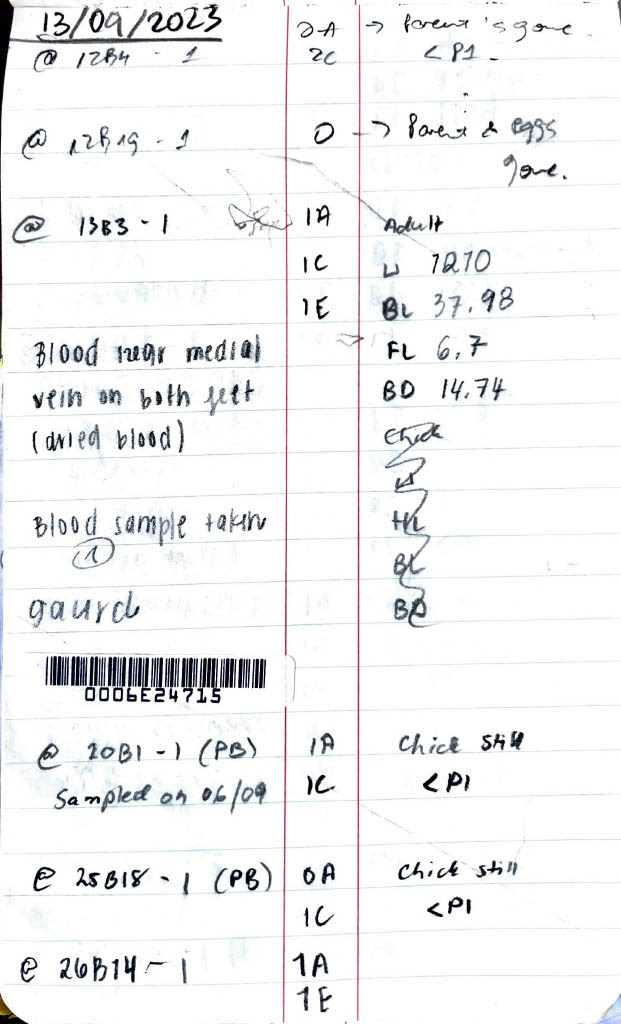 13/09/2023
@ 12B4 - 1 2A → Parent's gone.
2C <P1.
@ 12B19 - 1 0 → Parent & eggs
gone.
@ 13B3 - 1 1A Adult
1C W 1270
1E BL 37.98
Blood near medial FL 6.7
vein on both feet BD 14.74
(dried blood) Chick
W
Blood sample taken HL
1
BL
gaurd BD
0006E24715
@ 20B1 - 1 (PB) 1A Chick still
Sampled on 06/09 1C <P1
@ 25B18 - 1 (PB) 0A Chick still
1C <P1
@ 26B14 - 1 1A
1E